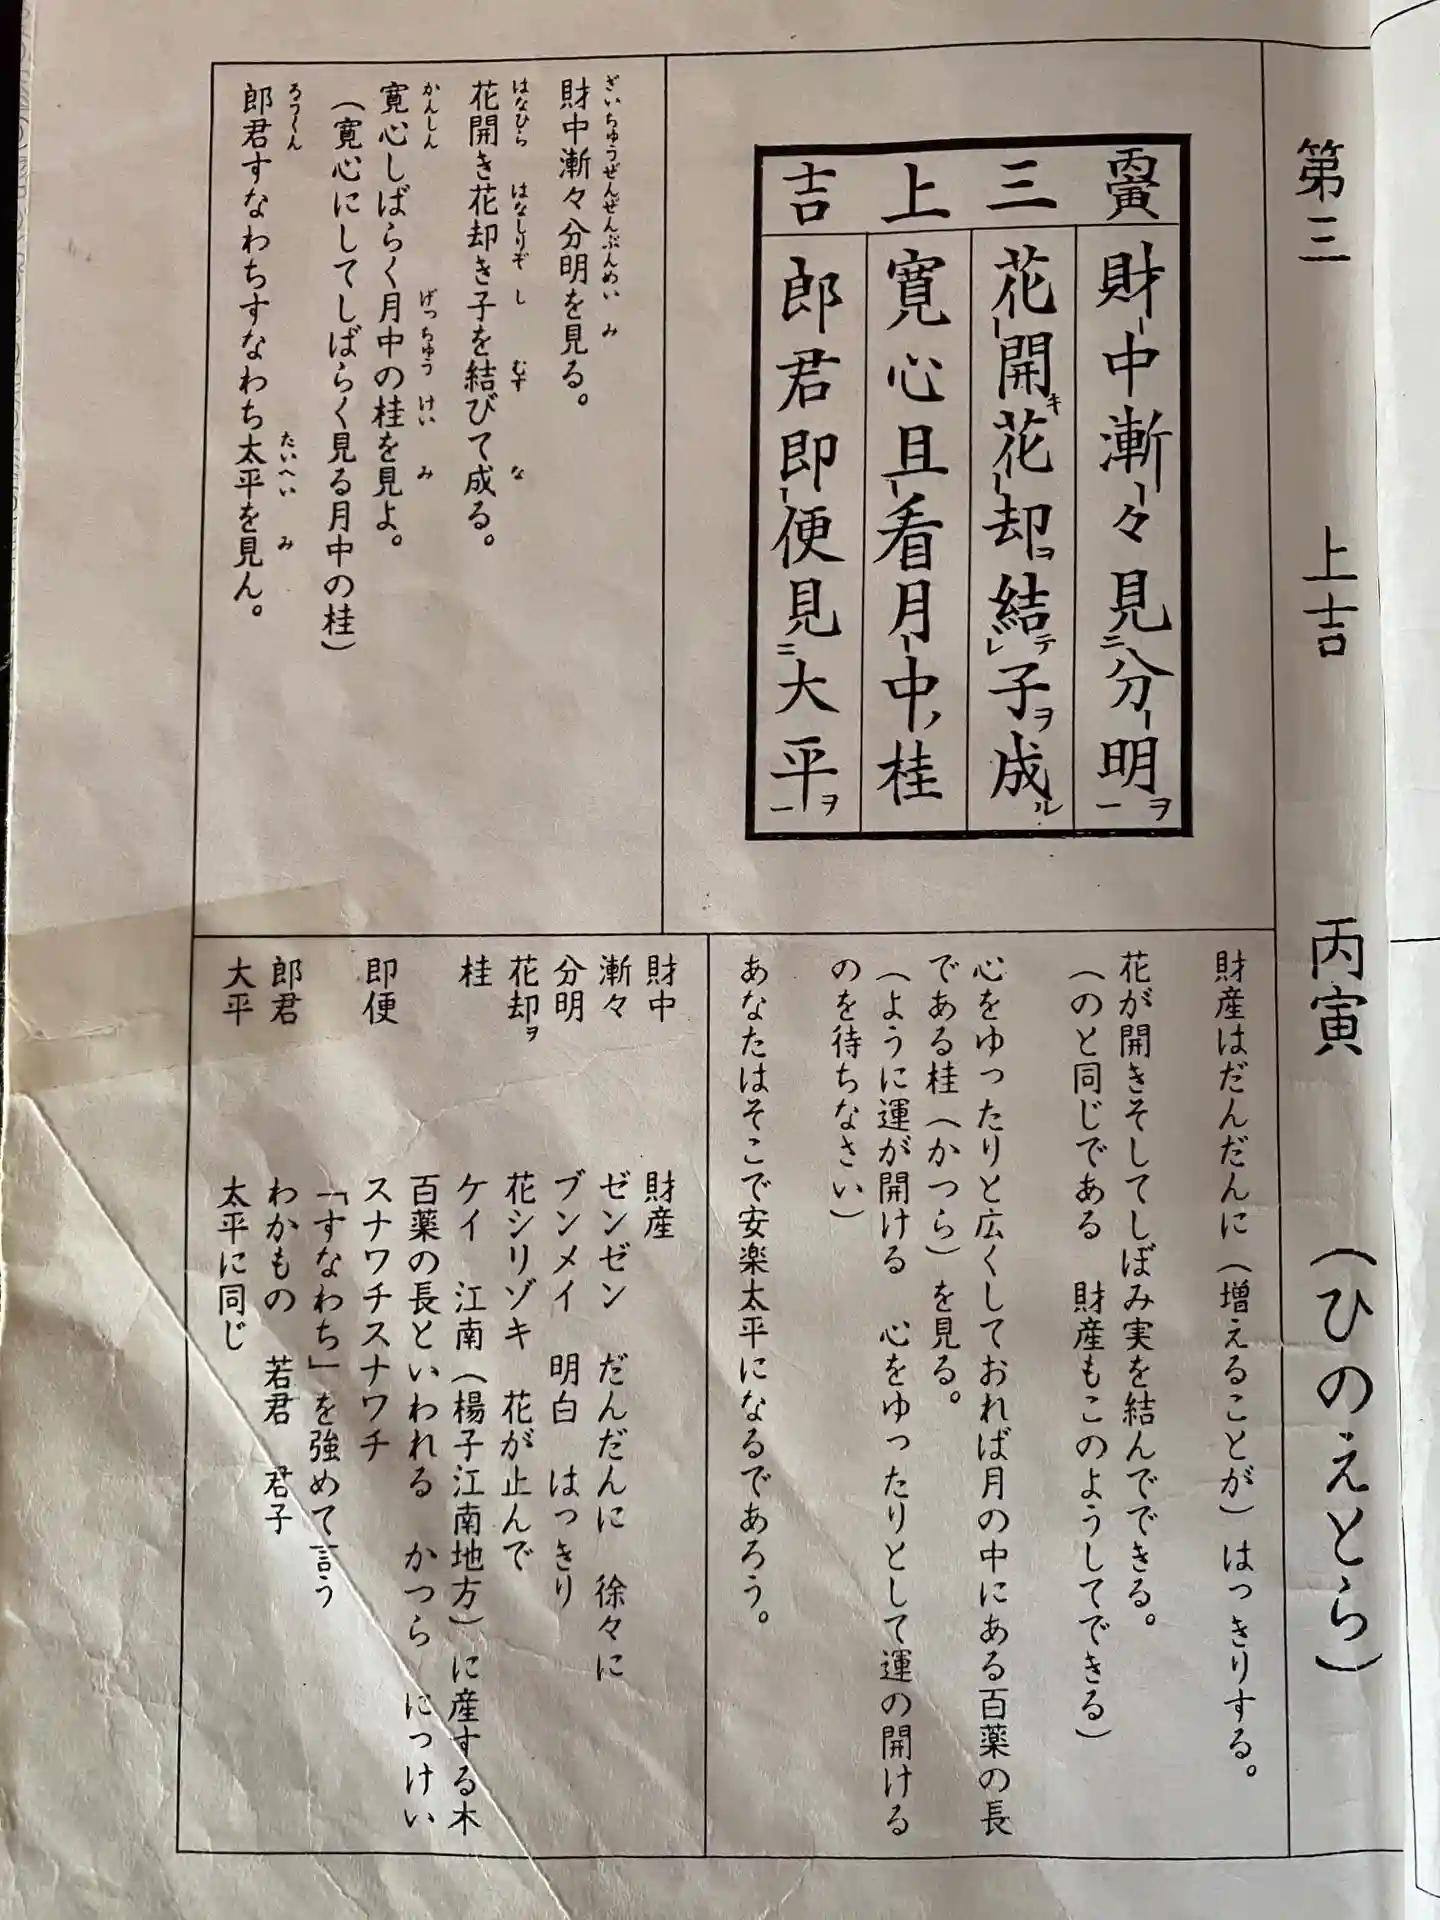 第三　上吉　丙寅　（ひのえとら）
丙寅　三　上　吉
財中漸々見ニ分明ヲ一
花開キ花却ヲ結テレ子ヲ成ル
寛心且看月中ノ桂
郎君即便見ニ大平ヲ一
財中漸々分明を見る。
ざいちゅうぜんぜんぶんめい　み
花開き花却き子を結びて成る。
はなひら　はなしりぞ　し　むす　な
寛心しばらく月中の桂を見よ。
かんしん　げっちゅう　けい　み
（寛心にしてしばらく見る月中の桂）
郎君すなわちすなわち太平を見ん。
ろうくん　たいへい　み
財産はだんだんに（増えることが）はっきりする。
花が開きそしてしぼみ実を結んでできる。
（のと同じである　財産もこのようしてできる）
心をゆったりと広くしておれば月の中にある百薬の長
である桂（かつら）を見る。
（ように運が開ける　心をゆったりとして運の開ける
のを待ちなさい）
あなたはそこで安楽太平になるであろう。
財中　財産
漸々　ゼンゼン　だんだんに　徐々に
分明　ブンメイ　明白　はっきり
花却ヲ　花シリゾキ　花が止んで
桂　ケイ　江南（楊子江南地方）に産する木
百薬の長といわれる　かつら　にっけい
即便　スナワチスナワチ
「すなわち」を強めて言う
郎君　わかもの　若君　君子
大平　太平に同じ